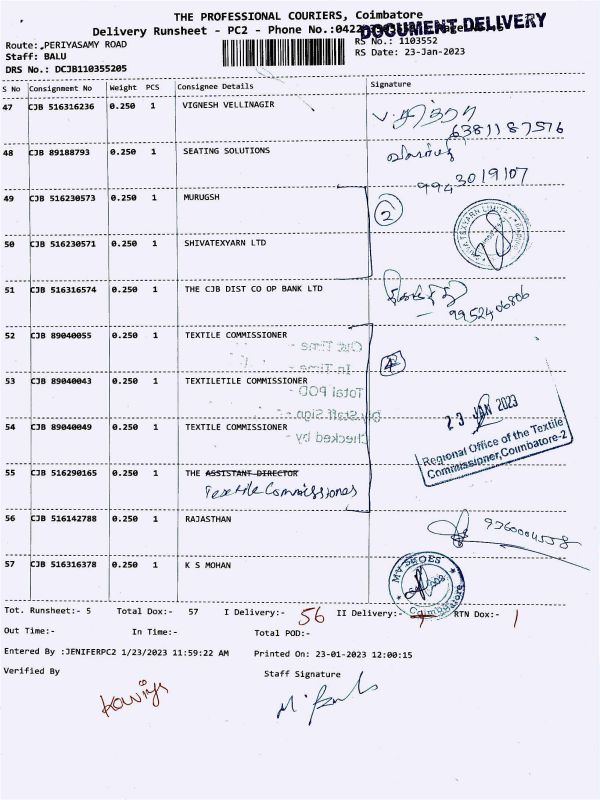 THE PROFESSIONAL COURIERS, Coimbatore
DOCUMENT DELIVERY
Delivery Runsheet - PC2 - Phone No.:0422
Route: PERIYASAMY ROAD
RS No.: 1103552
Staff: BALU
RS Date: 23-Jan-2023
DRS No.: DCJB110355205
S No Consignment No Weight PCS Consignee Details Signature
47 CJB 516316236 0.250 1 VIGNESH VELLINAGIR
6381187576
48 CJB 89188793 0.250 1 SEATING SOLUTIONS
9943019107
49 CJB 516230573 0.250 1 MURUGSH
2
50 CJB 516230571 0.250 1 SHIVATEXYARN LTD
51 CJB 516316574 0.250 1 THE CJB DIST CO OP BANK LTD
9952406806
52 CJB 89040055 0.250 1 TEXTILE COMMISSIONER
Out Time -
In Time -
4
53 CJB 89040043 0.250 1 TEXTILETILE COMMISSIONER
Total POD -
Staff Sign -
23 JAN 2023
54 CJB 89040049 0.250 1 TEXTILE COMMISSIONER
Checked by
Regional Office of the Textile
Commissioner, Coimbatore-2
55 CJB 516290165 0.250 1 THE ASSISTANT DIRECTOR
Textile Commissioner
56 CJB 516142788 0.250 1 RAJASTHAN
57 CJB 516316378 0.250 1 K S MOHAN
MY SHOES
Coimbatore
Tot. Runsheet:- 5 Total Dox:- 57 I Delivery:- 56 II Delivery:- RTN Dox:- 1
Out Time:- In Time:- Total POD:-
Entered By :JENIFERPC2 1/23/2023 11:59:22 AM Printed On: 23-01-2023 12:00:15
Verified By Staff Signature